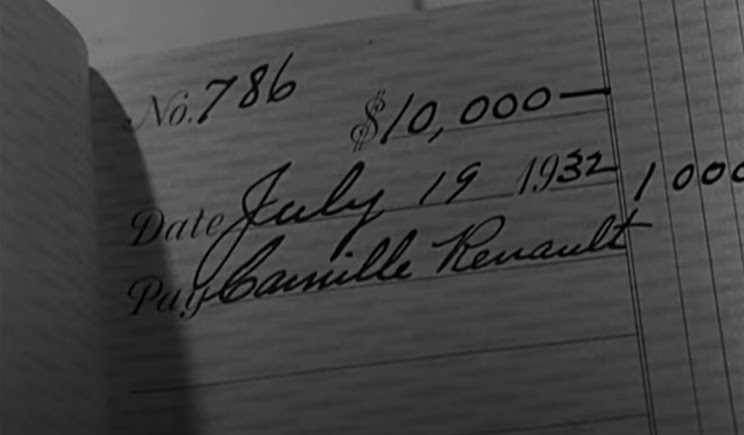 No. 786
$10,000—
Date July 19 1932
1 000
Pay Camille Renault